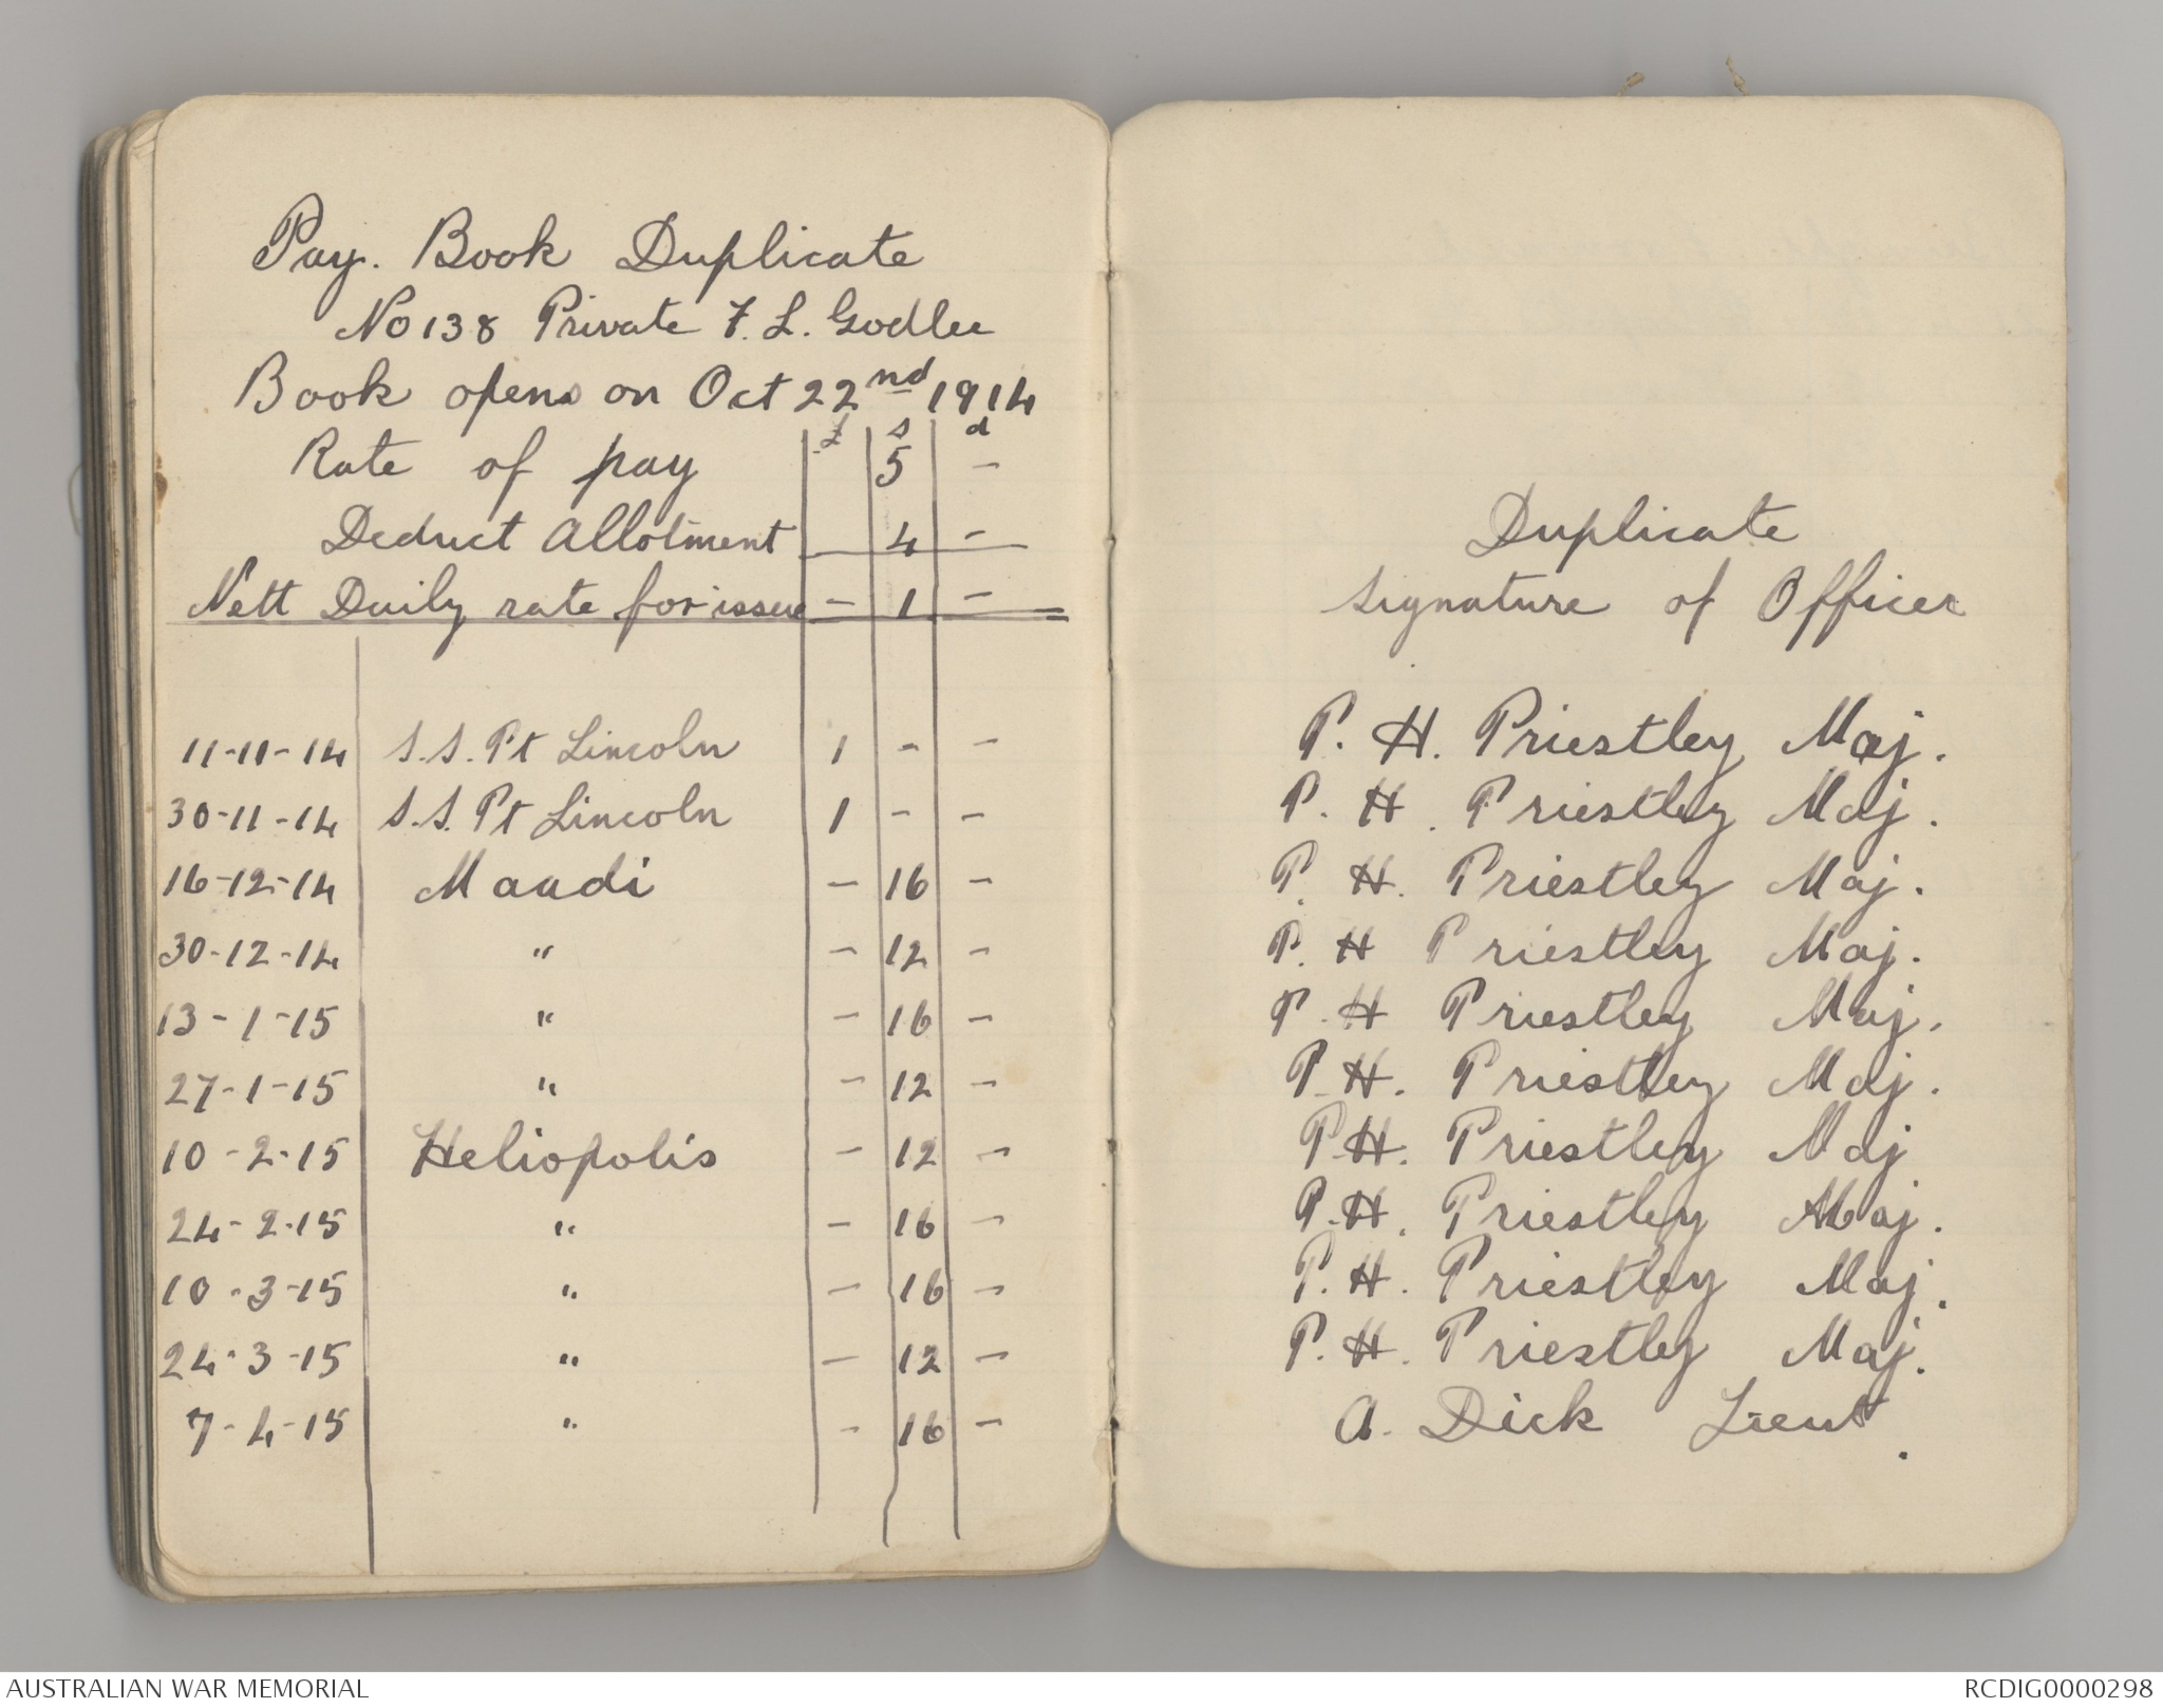 Pay. Book Duplicate
No 138 Private F. L. Godlee
Book opens on Oct 22nd 1914
£ s d
Rate of pay 5 -
Deduct Allotment 4 -
Nett Daily rate for issue - 1 -
11-11-14 S.S. Pt Lincoln 1 - -
30-11-14 S.S. Pt Lincoln 1 - -
16-12-14 Maadi - 16 -
30-12-14 " - 12 -
13-1-15 " - 16 -
27-1-15 " - 12 -
10-2-15 Heliopolis - 12 -
24-2-15 " - 16 -
10-3-15 " - 16 -
24-3-15 " - 12 -
7-4-15 " - 16 -
Duplicate
Signature of Officer
P. H. Priestley Maj.
P. H. Priestley Maj.
P. H. Priestley Maj.
P. H Priestley Maj.
P. H Priestley Maj.
P. H. Priestley Maj.
P. H. Priestley Maj
P. H. Priestley Maj.
P. H. Priestley Maj.
P. H. Priestley Maj.
A. Dick Lieut.
AUSTRALIAN WAR MEMORIAL
RCDIG0000298